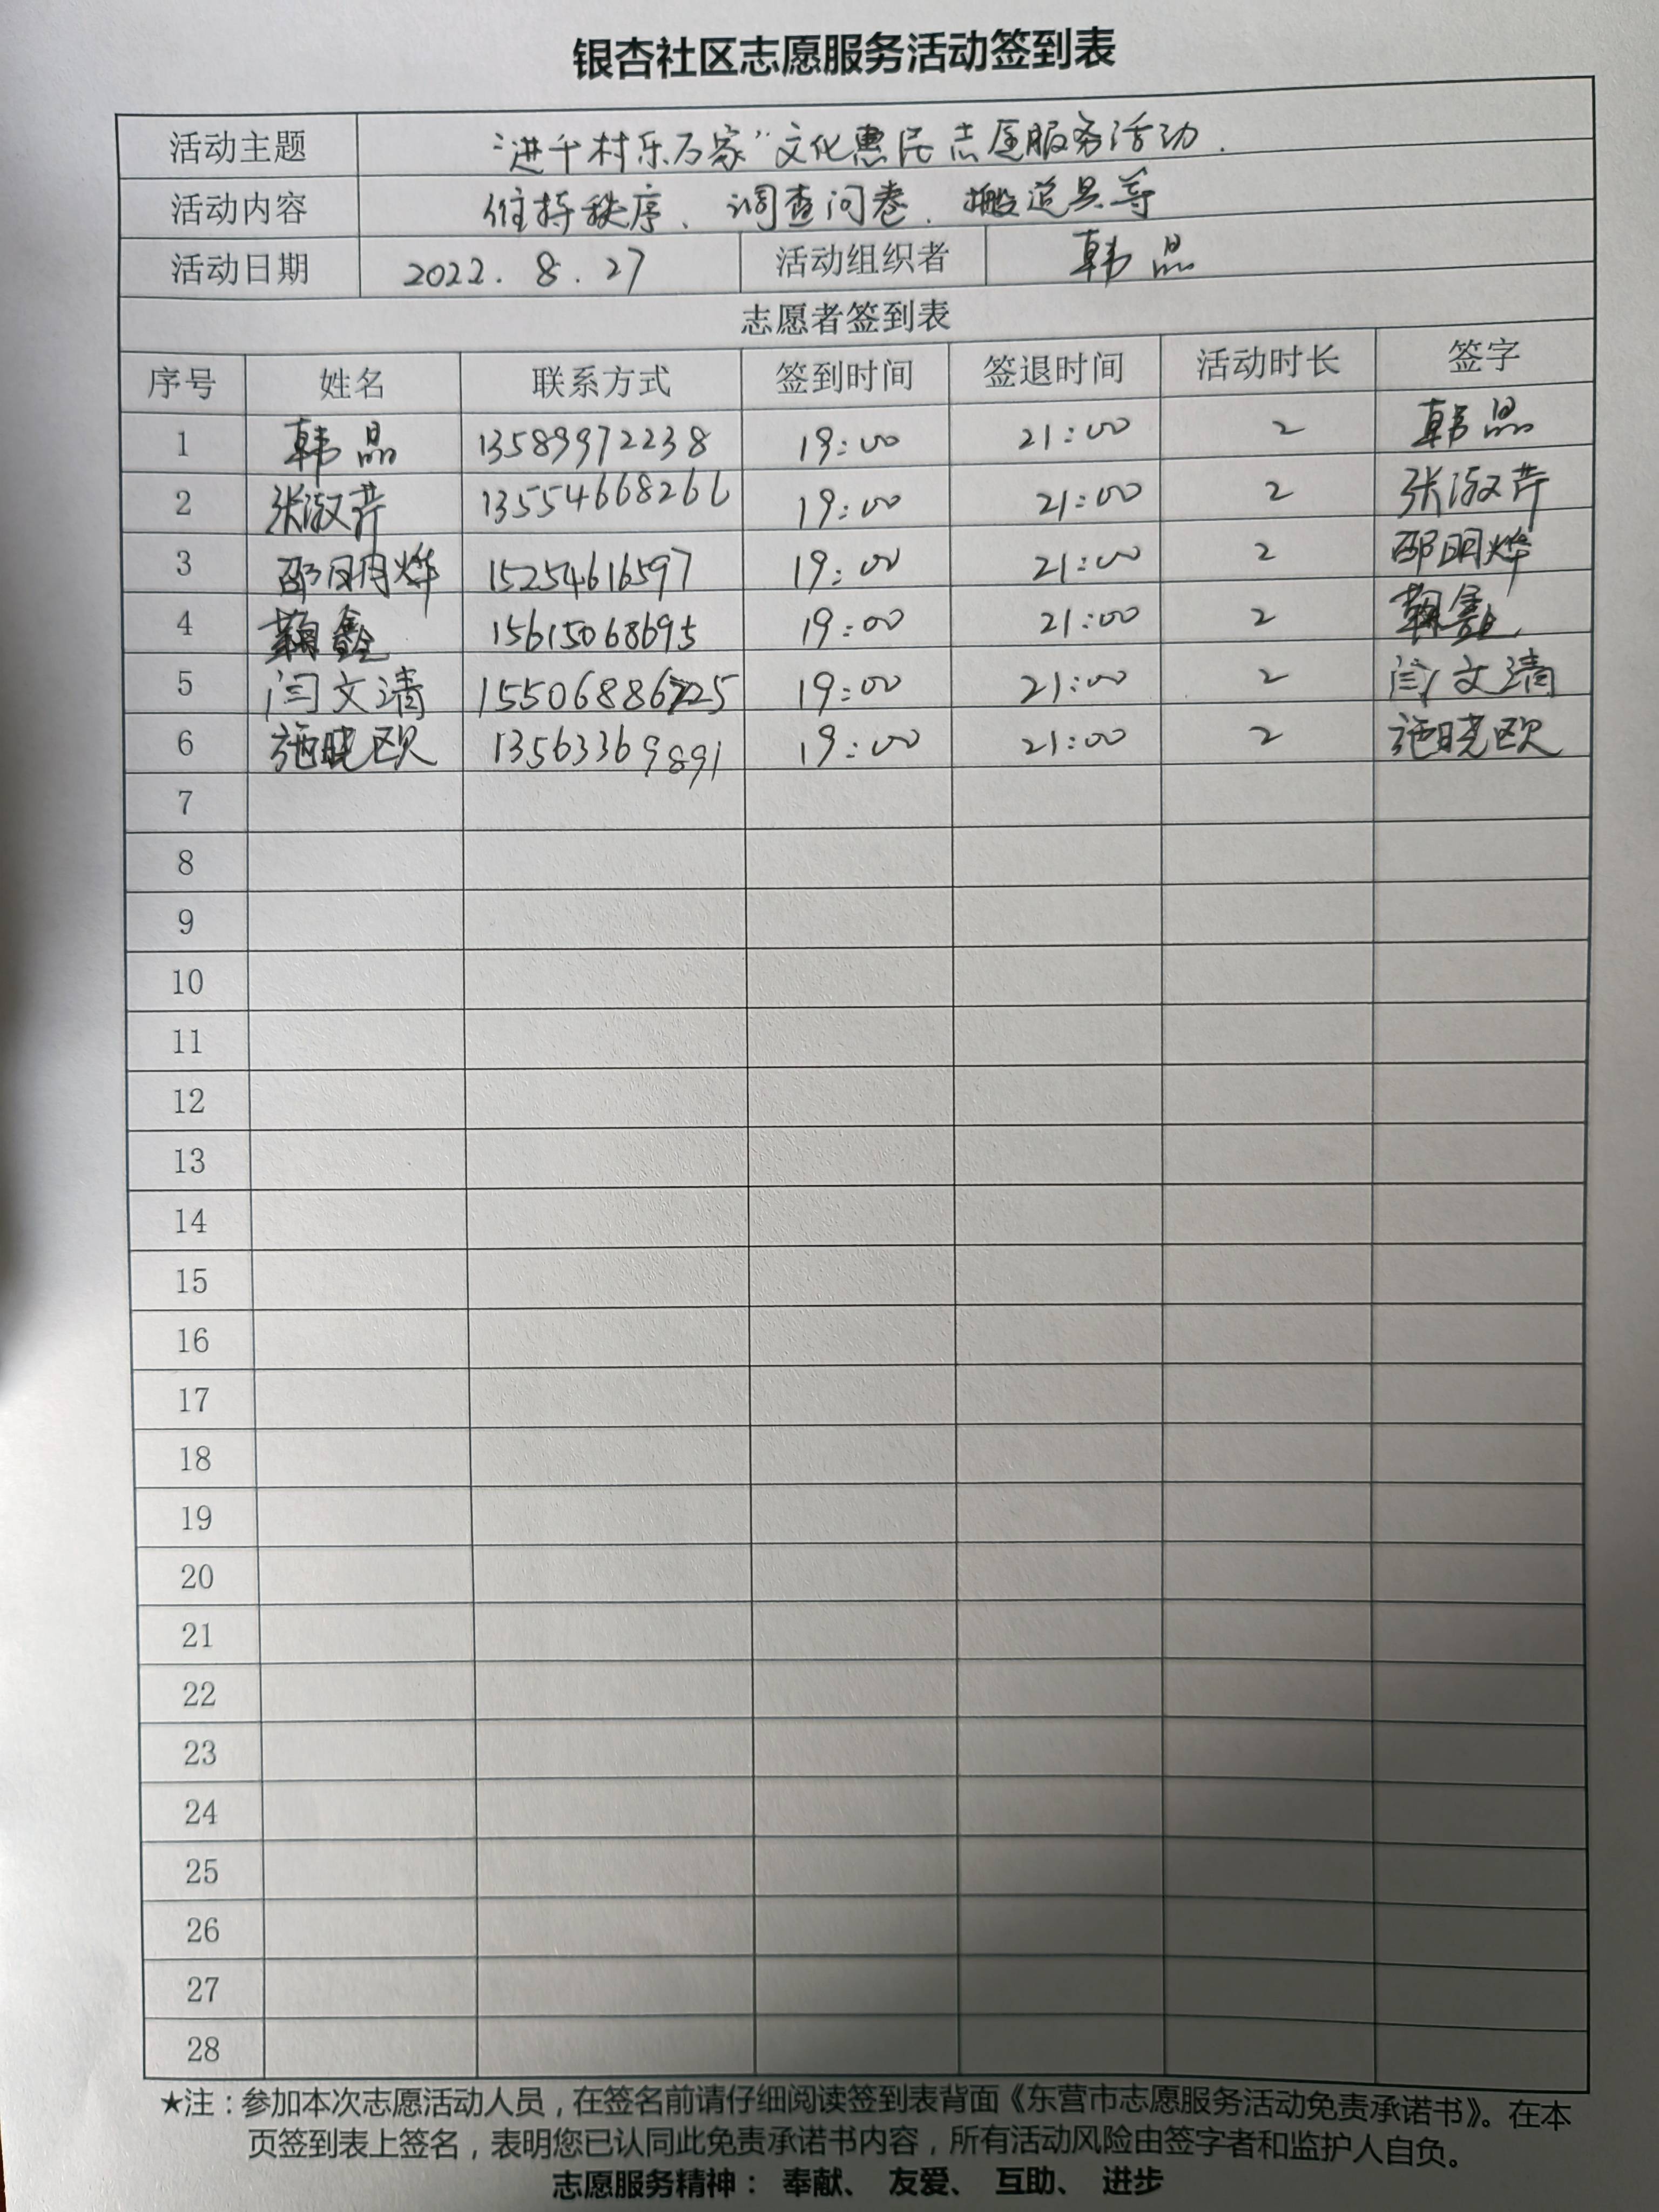 银杏社区志愿服务活动签到表
活动主题 “进千村乐百家”文化惠民志愿服务活动.
活动内容 维持秩序、调查问卷、搬道具等
活动日期 2022.8.27 活动组织者 韩晶
志愿者签到表
序号 姓名 联系方式 签到时间 签退时间 活动时长 签字
1 韩晶 13589972238 19:00 21:00 2 韩晶
2 张淑芹 13554668266 19:00 21:00 2 张淑芹
3 邵明烨 15254616597 19:00 21:00 2 邵明烨
4 15615068695 19:00 21:00 2
5 闫文清 19:00 21:00 2 闫文清
6 施晓欧 13563369891 19:00 21:00 2 施晓欧
7
8
9
10
11
12
13
14
15
16
17
18
19
20
21
22
23
24
25
26
27
28
★注：参加本次志愿活动人员，在签名前请仔细阅读签到表背面《东营市志愿服务活动免责承诺书》。在本
页签到表上签名，表明您已认同此免责承诺书内容，所有活动风险由签字者和监护人自负。
志愿服务精神： 奉献、 友爱、 互助、 进步